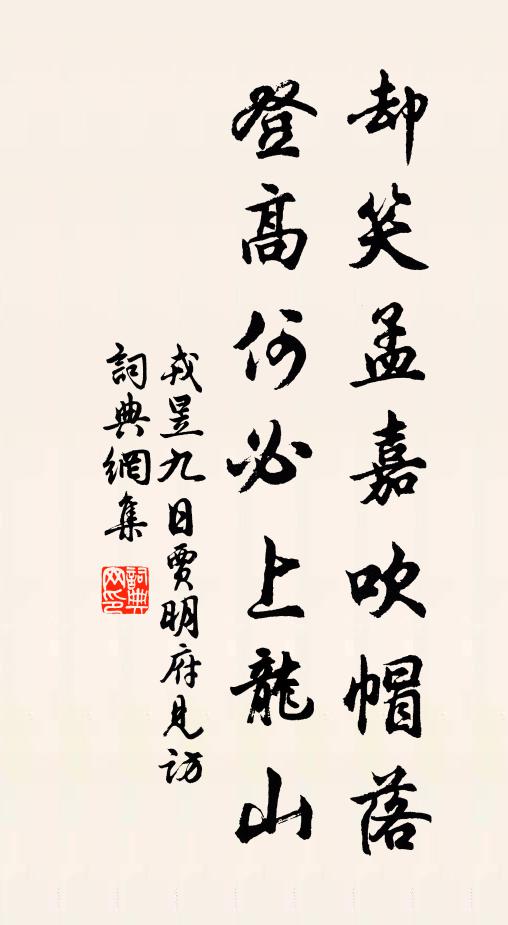 却笑孟嘉吹帽落
登高何必上龍山
戎昱九日賈明府見訪
詞典網集
詞典
网印